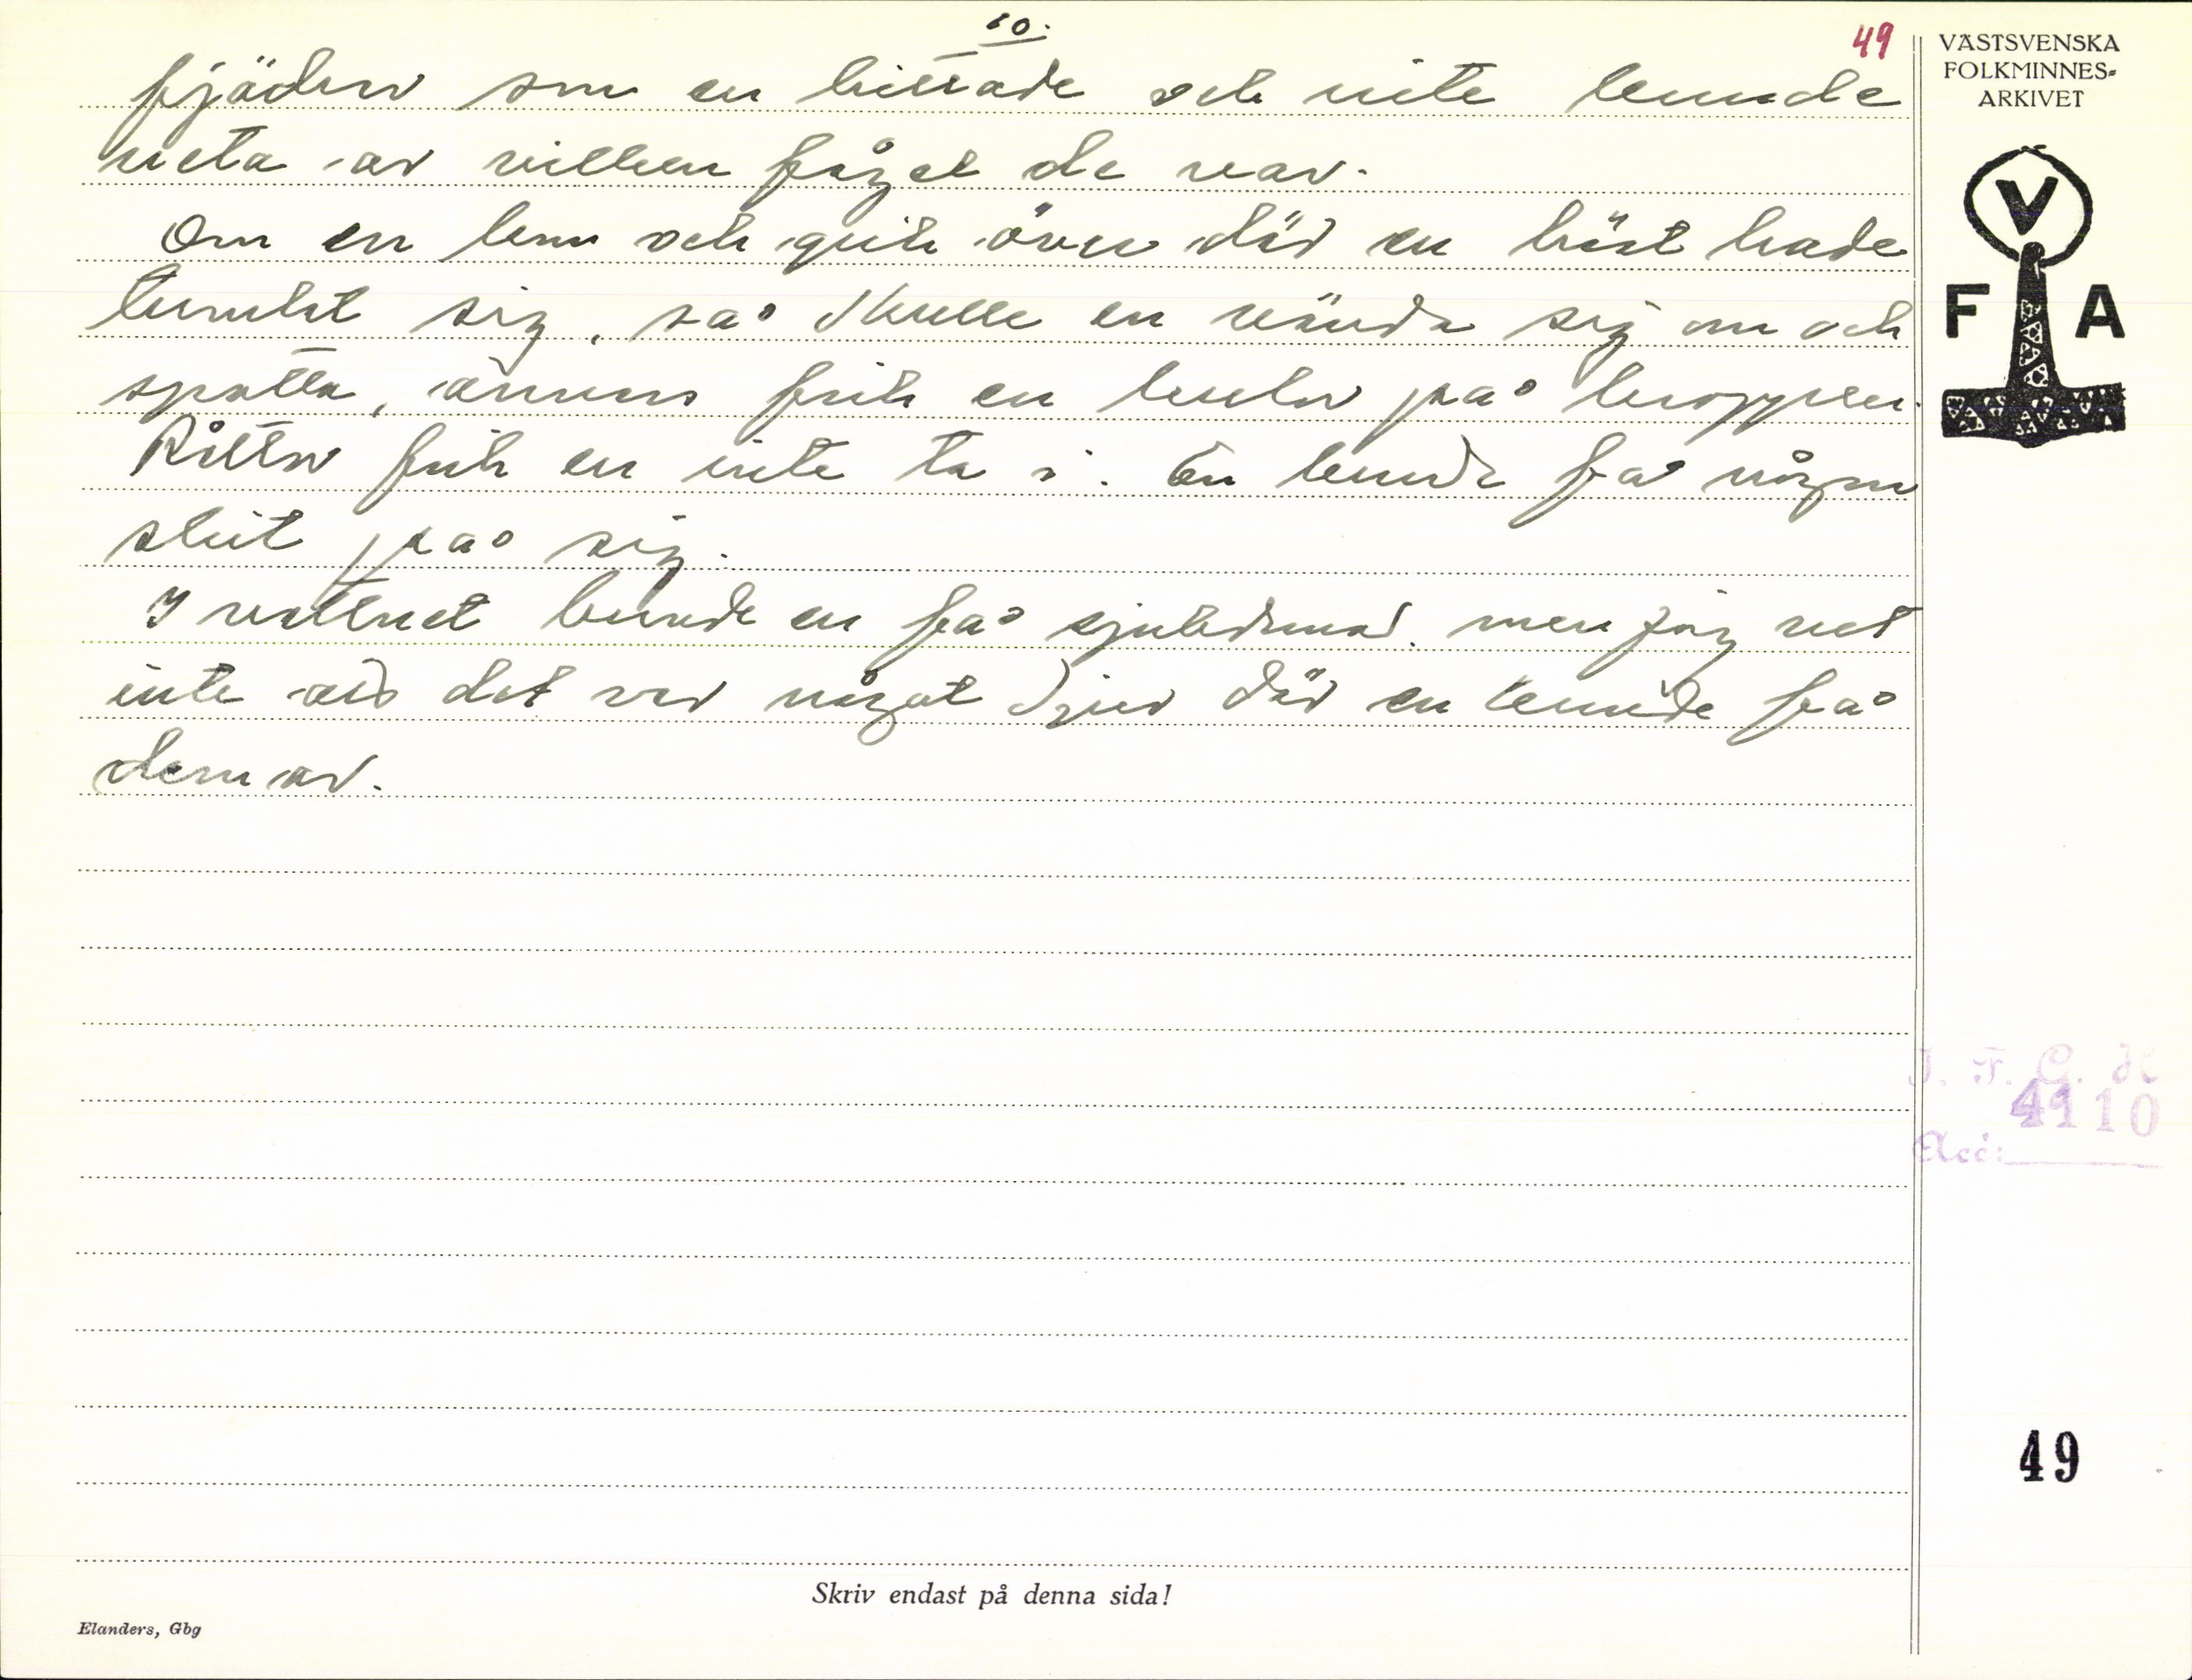 10.
49
fjäder som en hittade och inte kunde
veta av vilken fågel de var.
Om en kom och gick över där en häst hade
tumlat sig, så skulle en vända sig om och
spotta, annars fick en bulor på kroppen.
Råttor fick en inte ta i. En kunde få någon
skit på sig.
I vattnet kunde en få sjukdomar. men jag vet
inte om det var något djur där en kunde få
dem av.
VÄSTSVENSKA
FOLKMINNES-
ARKIVET
V
F A
I. F. G. H
4110
Acc:
49
Skriv endast på denna sida!
Elanders, Gbg